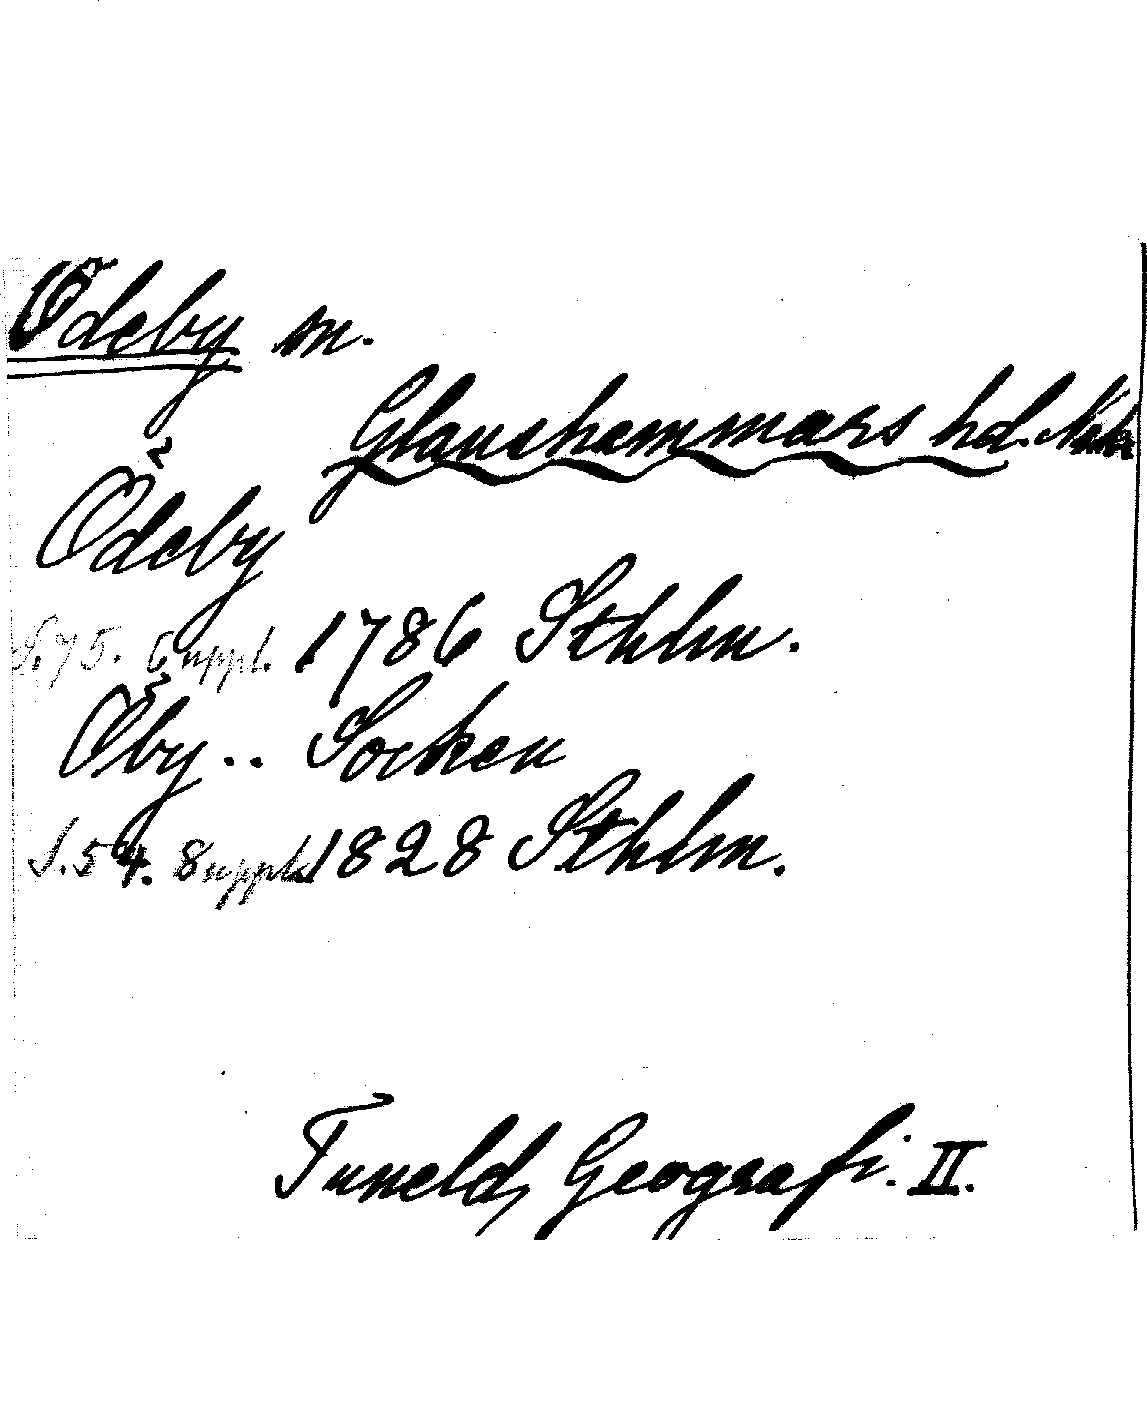 Ödeby sn.
Glanshammars hd. Närke
Ödeby
S. 75. Suppl. 1786 Sthlm.
Öby.. Socken
S. 54. Suppl. 1828 Sthlm.
Tuneld, Geografi. II.